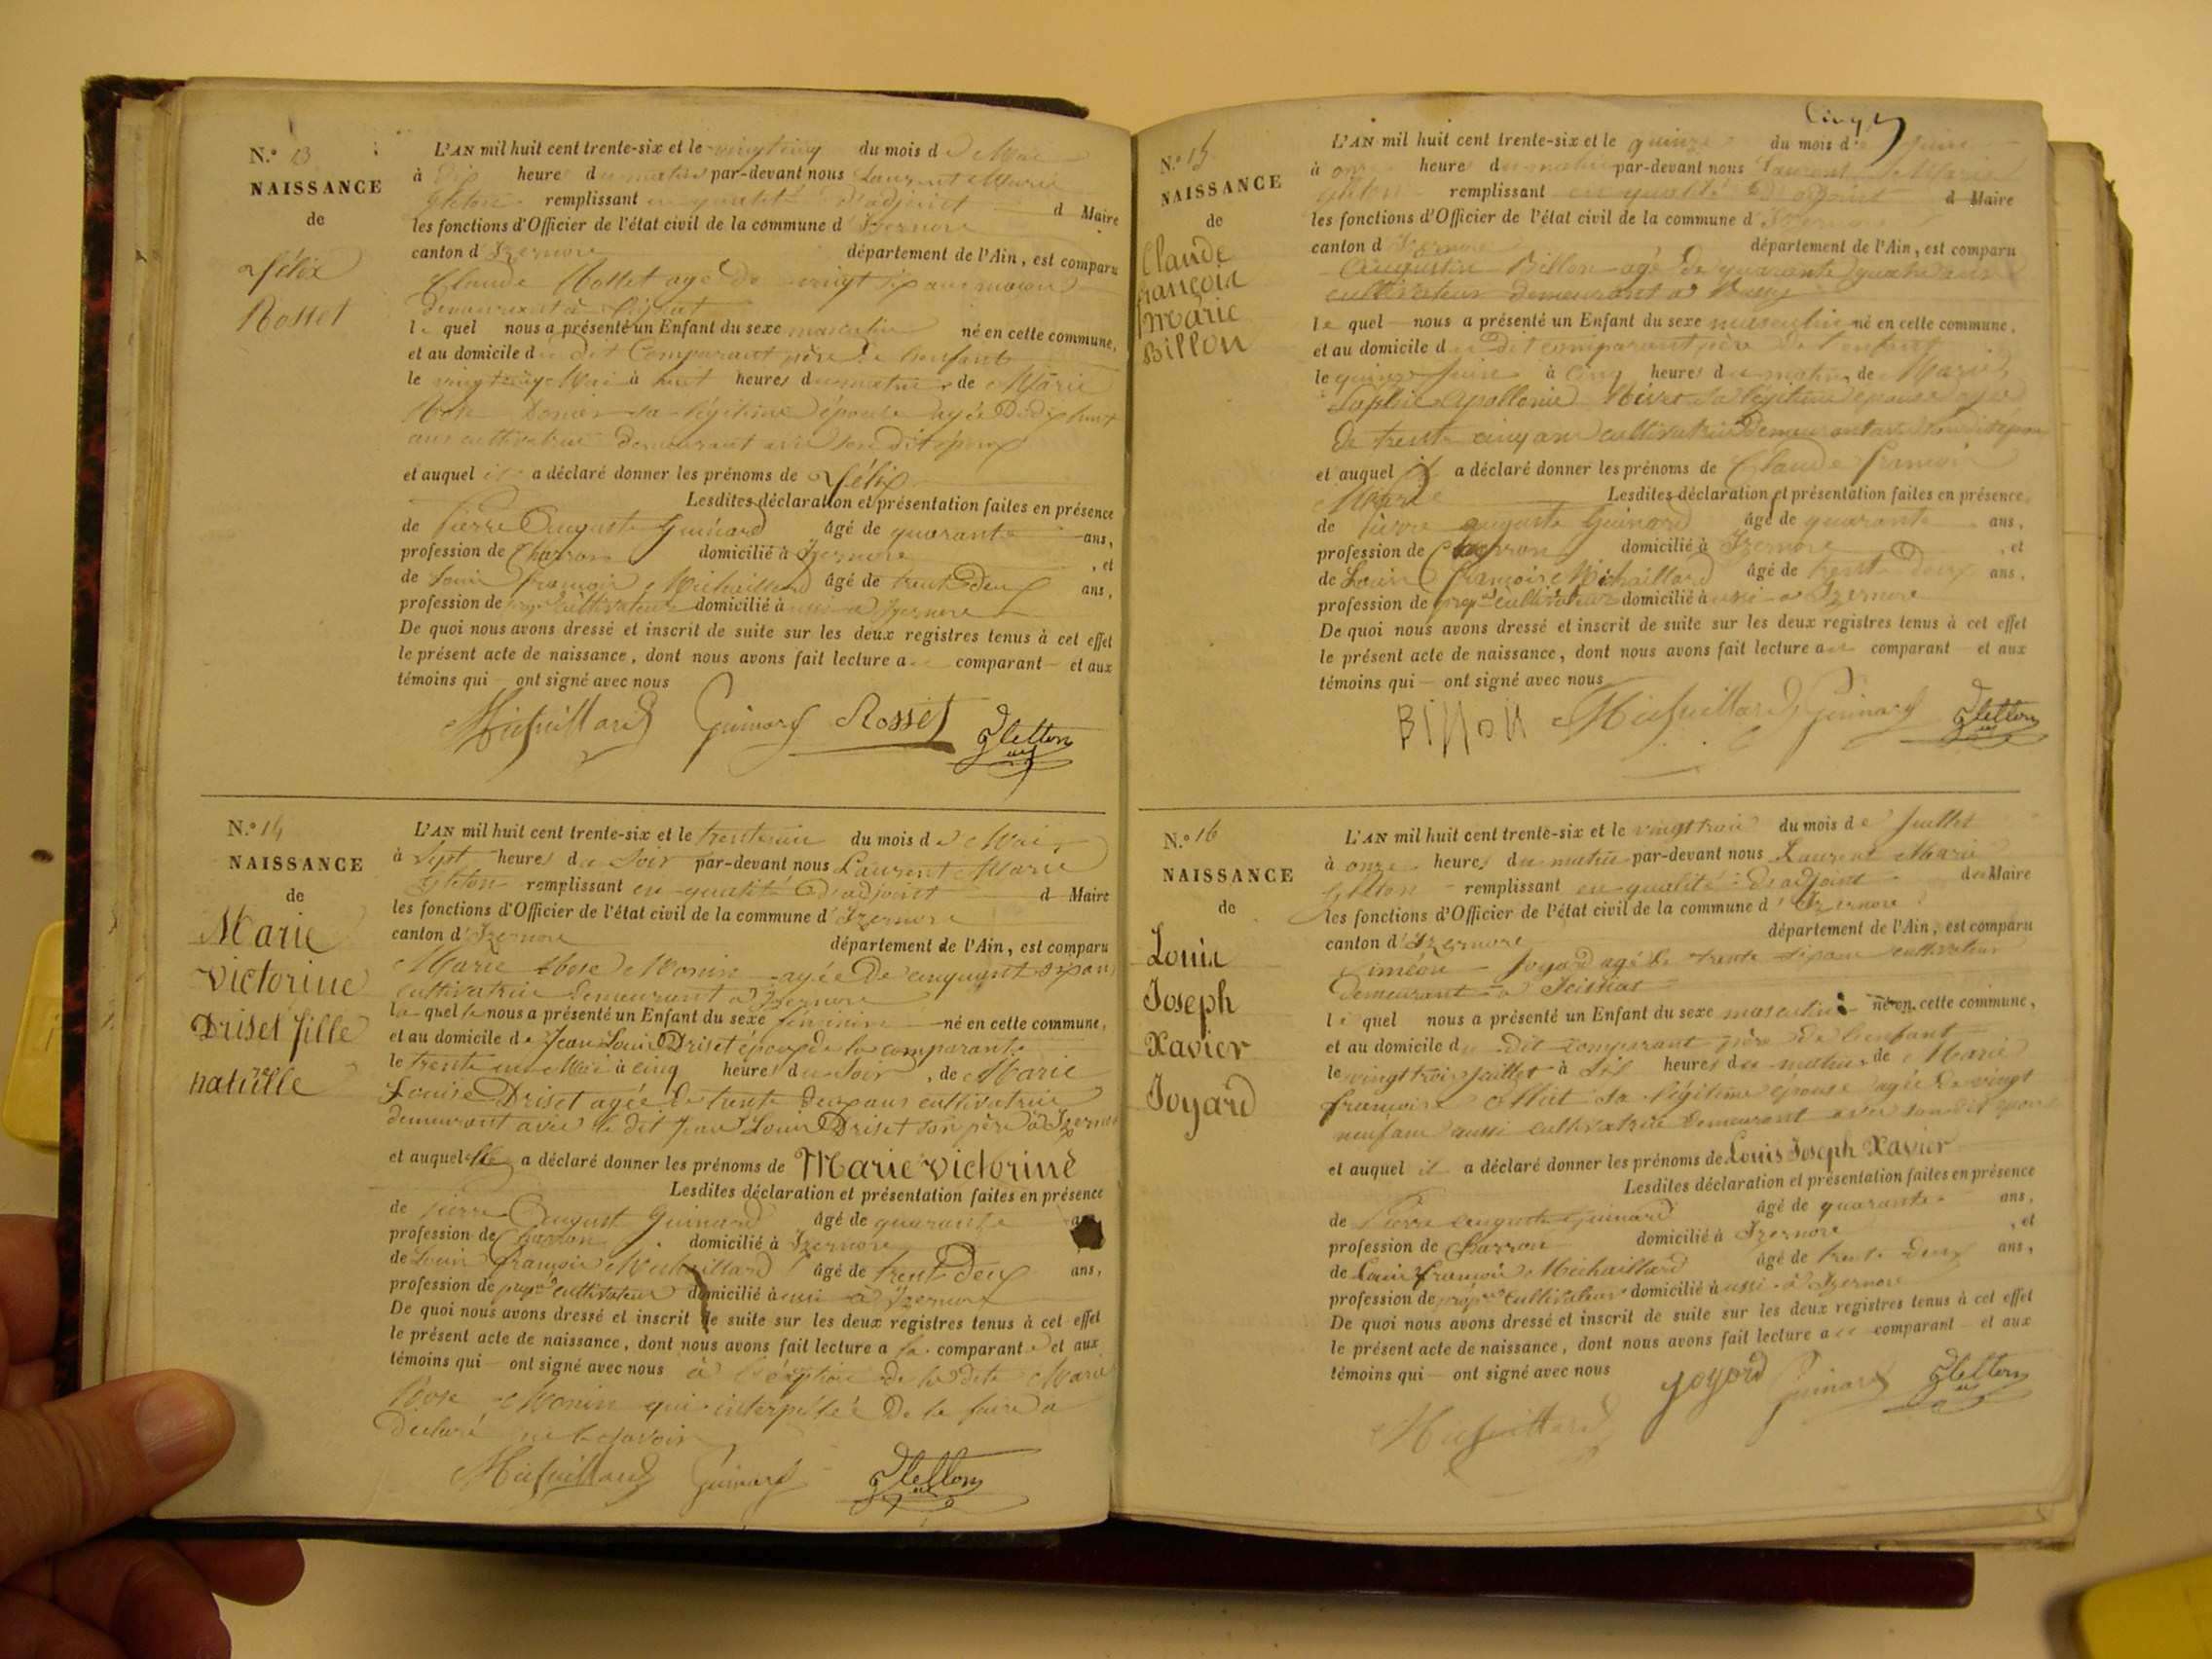 N.° 13
NAISSANCE
de
félix
Rosset
L'AN mil huit cent trente-six et le vingt cinq du mois de Mai
à dix heures du matin par-devant nous Laurent Marie
Gletton remplissant en qualité d'adjoint d Maire
les fonctions d'Officier de l'état civil de la commune d'Izernore
canton d'Izernore département de l'Ain, est comparu
Claude Rosset agé de vingt six ans maçon
demeurant à
le quel nous a présenté un Enfant du sexe masculin né en cette commune,
et au domicile du dit Comparant père de l'enfant
le vingt cinq Mai à huit heures du matin, de Marie
Rose sa légitime épouse agée de dix huit
ans cultivatrice demeurant avec son dit époux
et auquel il a déclaré donner les prénoms de félix
Lesdites déclaration et présentation faites en présence
de pierre Auguste Guinard âgé de quarante ans,
profession de Charron domicilié à Izernore, et
de Louis françois Michaillard âgé de trente deux ans,
profession de propre cultivateur domicilié à aussi à Izernore
De quoi nous avons dressé et inscrit de suite sur les deux registres tenus à cet effet
le présent acte de naissance, dont nous avons fait lecture au comparant et aux
témoins qui ont signé avec nous
Michaillard Guinard Rosset Gletton
adj
N.° 14
NAISSANCE
de
Marie
Victorine
Driset fille
naturelle
L'AN mil huit cent trente-six et le trente un du mois de Mai
à Sept heures du Soir par-devant nous Laurent Marie
Gletton remplissant en qualité d'adjoint d Maire
les fonctions d'Officier de l'état civil de la commune d'Izernore
canton d'Izernore département de l'Ain, est comparu
Marie Rose Monin agée de cinquante six ans
cultivatrice demeurant à Izernore
laquelle nous a présenté un Enfant du sexe féminin né en cette commune,
et au domicile de Jean Louis Driset époux de la comparante
le trente un Mai à cinq heures du Soir, de Marie
Louise Driset agée de trente deux ans cultivatrice
demeurant avec le dit Jean Louis Driset son père à Izernore
et auquel elle a déclaré donner les prénoms de Marie Victorine
Lesdites déclaration et présentation faites en présence
de pierre August Guinard âgé de quarante
profession de Charron domicilié à Izernore
de Louis françois Michaillard âgé de trente deux ans,
profession de propre cultivateur domicilié à aussi à Izernore
De quoi nous avons dressé et inscrit de suite sur les deux registres tenus à cet effet
le présent acte de naissance, dont nous avons fait lecture a la comparante et aux
témoins qui ont signé avec nous à l'éxeption de la dite Marie
Rose Monin qui interpelée de le faire a
Déclaré ne le savoir
Michaillard Guinard Gletton
adj
Cinq
N.° 15
NAISSANCE
de
Claude
françois
Marie
Billon
L'AN mil huit cent trente-six et le quinze du mois de Juin
à onze heures du matin par-devant nous Laurent Marie
Gletton remplissant en qualité d'adjoint d Maire
les fonctions d'Officier de l'état civil de la commune d'Izernore
canton d'Izernore département de l'Ain, est comparu
Augustin Billon agé de quarante quatre ans
cultivateur demeurant à
le quel nous a présenté un Enfant du sexe masculin né en cette commune,
et au domicile du dit comparant père de l'enfant
le quinze Juin à Cinq heures du matin, de Marie
Sophie Apollonie sa légitime épouse agée
de trente cinq ans cultivatrice demeurant avec son dit époux
et auquel il a déclaré donner les prénoms de Claude françois
Marie Lesdites déclaration et présentation faites en présence
de pierre auguste Guinard âgé de quarante ans,
profession de Charron domicilié à Izernore, et
de Louis françois Michaillard âgé de trente deux ans,
profession de propre cultivateur domicilié à aussi à Izernore
De quoi nous avons dressé et inscrit de suite sur les deux registres tenus à cet effet
le présent acte de naissance, dont nous avons fait lecture au comparant et aux
témoins qui ont signé avec nous
Billon Michaillard Guinard Gletton
adj
N.° 16
NAISSANCE
de
Louis
Joseph
Xavier
Joyard
L'AN mil huit cent trente-six et le vingt trois du mois de Juillet
à onze heures du matin par-devant nous Laurent Marie
Gletton remplissant en qualité d'adjoint de Maire
les fonctions d'Officier de l'état civil de la commune d'Izernore
canton d'Izernore département de l'Ain, est comparu
Siméon Joyard agé de trente six ans cultivateur
demeurant à
le quel nous a présenté un Enfant du sexe masculin né en cette commune,
et au domicile du dit comparant père de l'enfant
le vingt trois Juillet à dix heures du matin de Marie
françoise sa légitime épouse agée de vingt
neuf ans aussi cultivatrice demeurant avec son dit époux
et auquel il a déclaré donner les prénoms de Louis Joseph Xavier
Lesdites déclaration et présentation faites en présence
de Pierre auguste Guinard âgé de quarante ans,
profession de Charron domicilié à Izernore, et
de Louis françois Michaillard âgé de trente deux ans,
profession de propre cultivateur domicilié à aussi à Izernore
De quoi nous avons dressé et inscrit de suite sur les deux registres tenus à cet effet
le présent acte de naissance, dont nous avons fait lecture au comparant et aux
témoins qui ont signé avec nous Joyard Guinard Gletton
adj
Michaillard